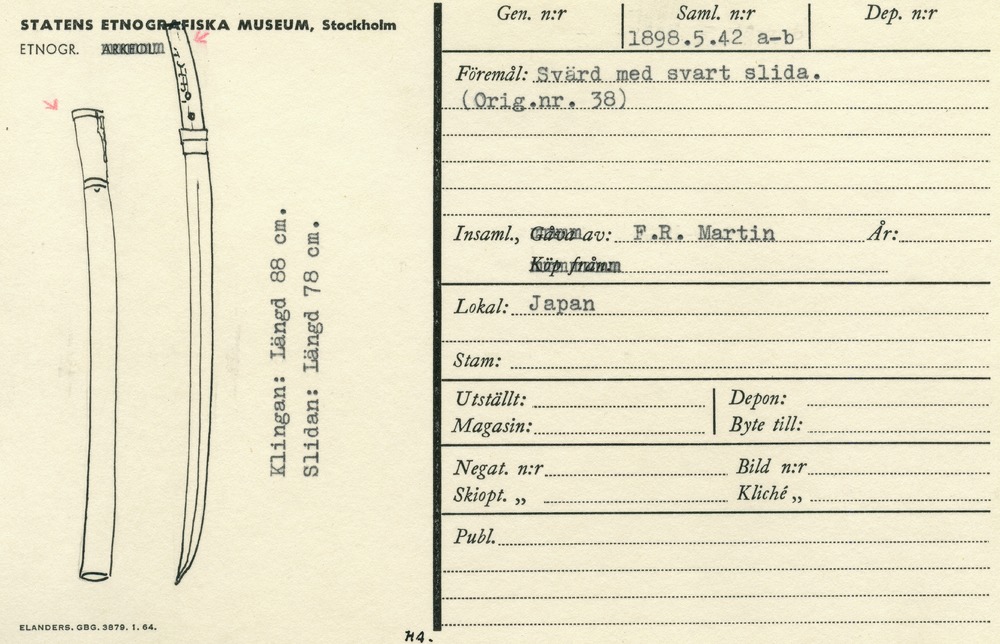 STATENS ETNOGRAFISKA MUSEUM, Stockholm
ETNOGR. ARKEOL.
Klingan: Längd 88 cm.
Slidan: Längd 78 cm.
ELANDERS. GBG. 3879. 1. 64.
Gen. n:r Saml. n:r Dep. n:r
1898.5.42 a-b
Föremål: Svärd med svart slida.
(Orig.nr. 38)
Insaml., Gåva av: F.R. Martin År:
Köp från:
Lokal: Japan
Stam:
Utställt: Depon:
Magasin: Byte till:
Negat. n:r Bild n:r
Skiopt. „ Kliché „
Publ.